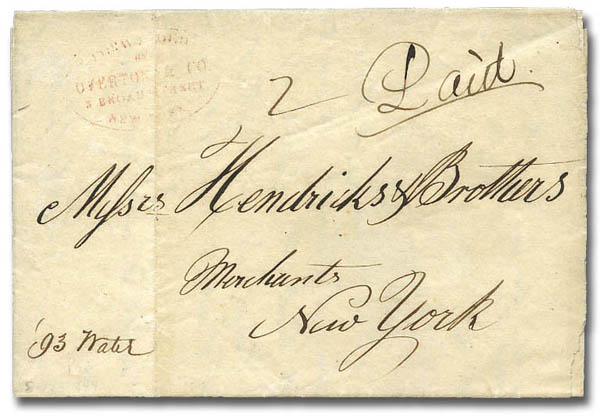 FORWARDED
BY
OVERTON & CO
3 BROAD STREET
NEW YORK
2 Paid.
Messrs Hendricks & Brothers
Merchants
New York
93 Water